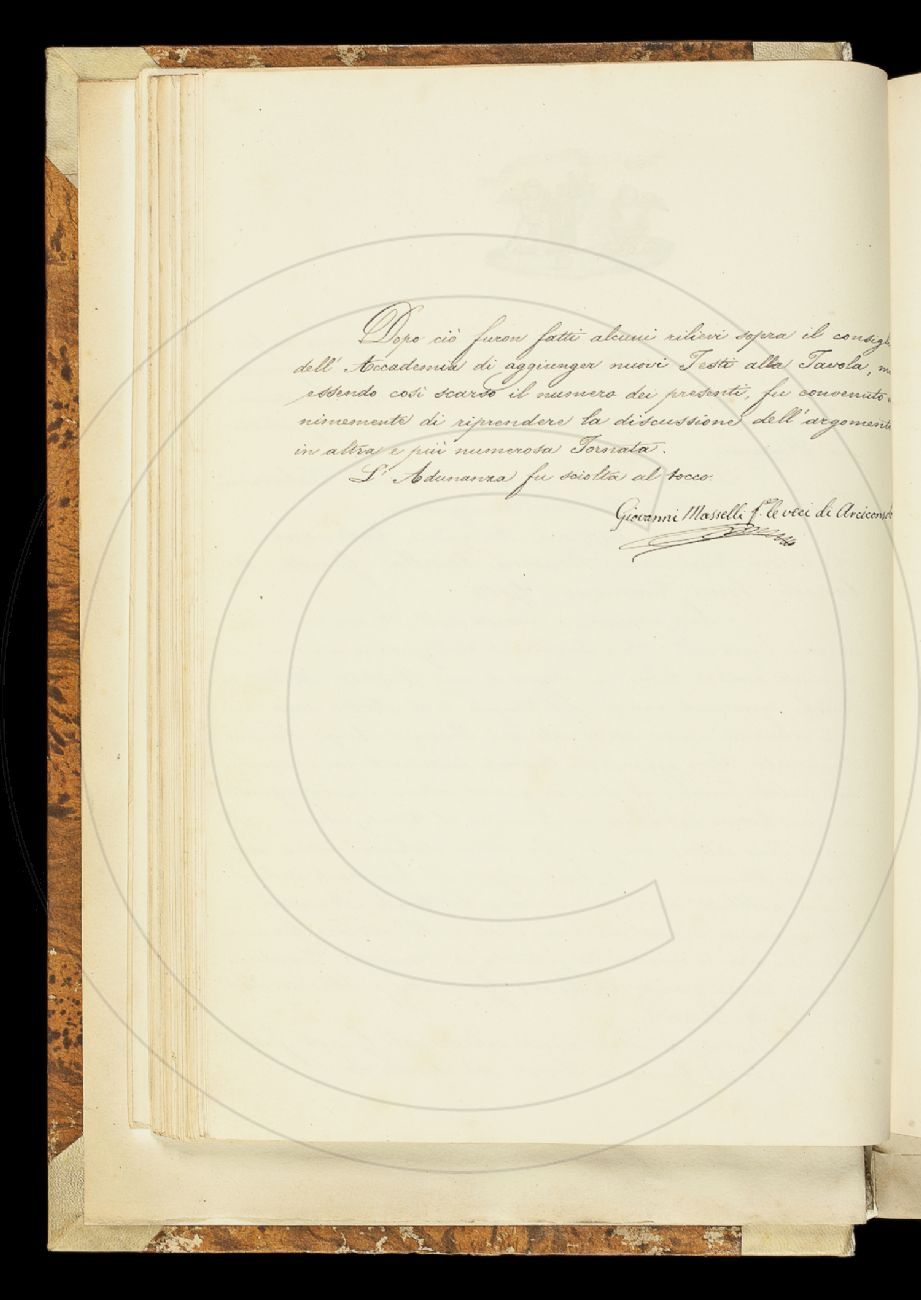 Dopo ciò furon fatti alcuni rilievi sopra il consigl
dell' Accademia di aggiunger nuovi Testi alla Tavola, m
essendo così scarso il numero dei presenti, fu convenuto
nimemente di riprendere la discussione dell'argoment
in altra e più numerosa Tornata.
L' Adunanza fu sciolta al tocco.
Giovanni Masselli f. le veci di Arcicons